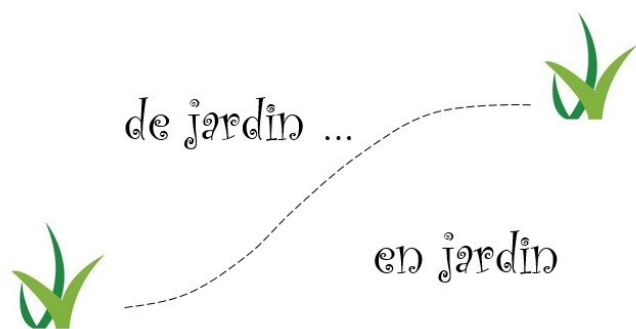 de jardin ...
en jardin